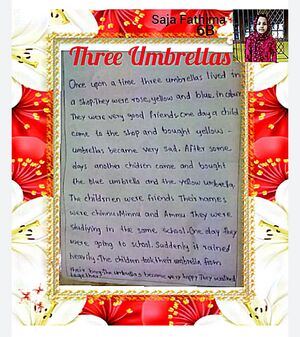 Saja Fathima
6B
Three Umbrellas
Once upon a time three umbrellas lived in
a shop. They were rose, yellow and blue in colour.
They were very good friends. One day a child
come to the shop and bought yellow -
umbrellas became very sad. After some
days another children came and bought
the blue umbrella and the yellow umbrella,
The children were friends. Their names
were chinnu, Minnu and Ammu. They were
studiying in the same school. One day they
were going to school. Suddenly it rained
heavily. The children took their umbrella from
their bag. The umbrellas became very happy. They walked
together.